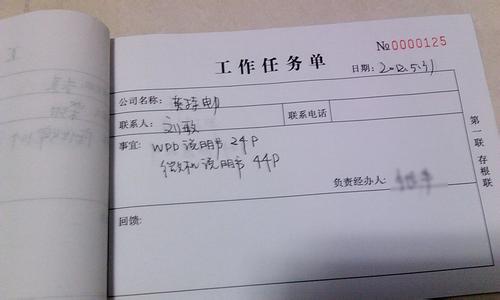 工作任务单
№0000125
日期: 2012.5.31
公司名称:
联系人: 刘敏
联系电话
事宜: WPD 说明书 24P
微机说明书 44P
负责经办人:
回馈:
第一联 存根联